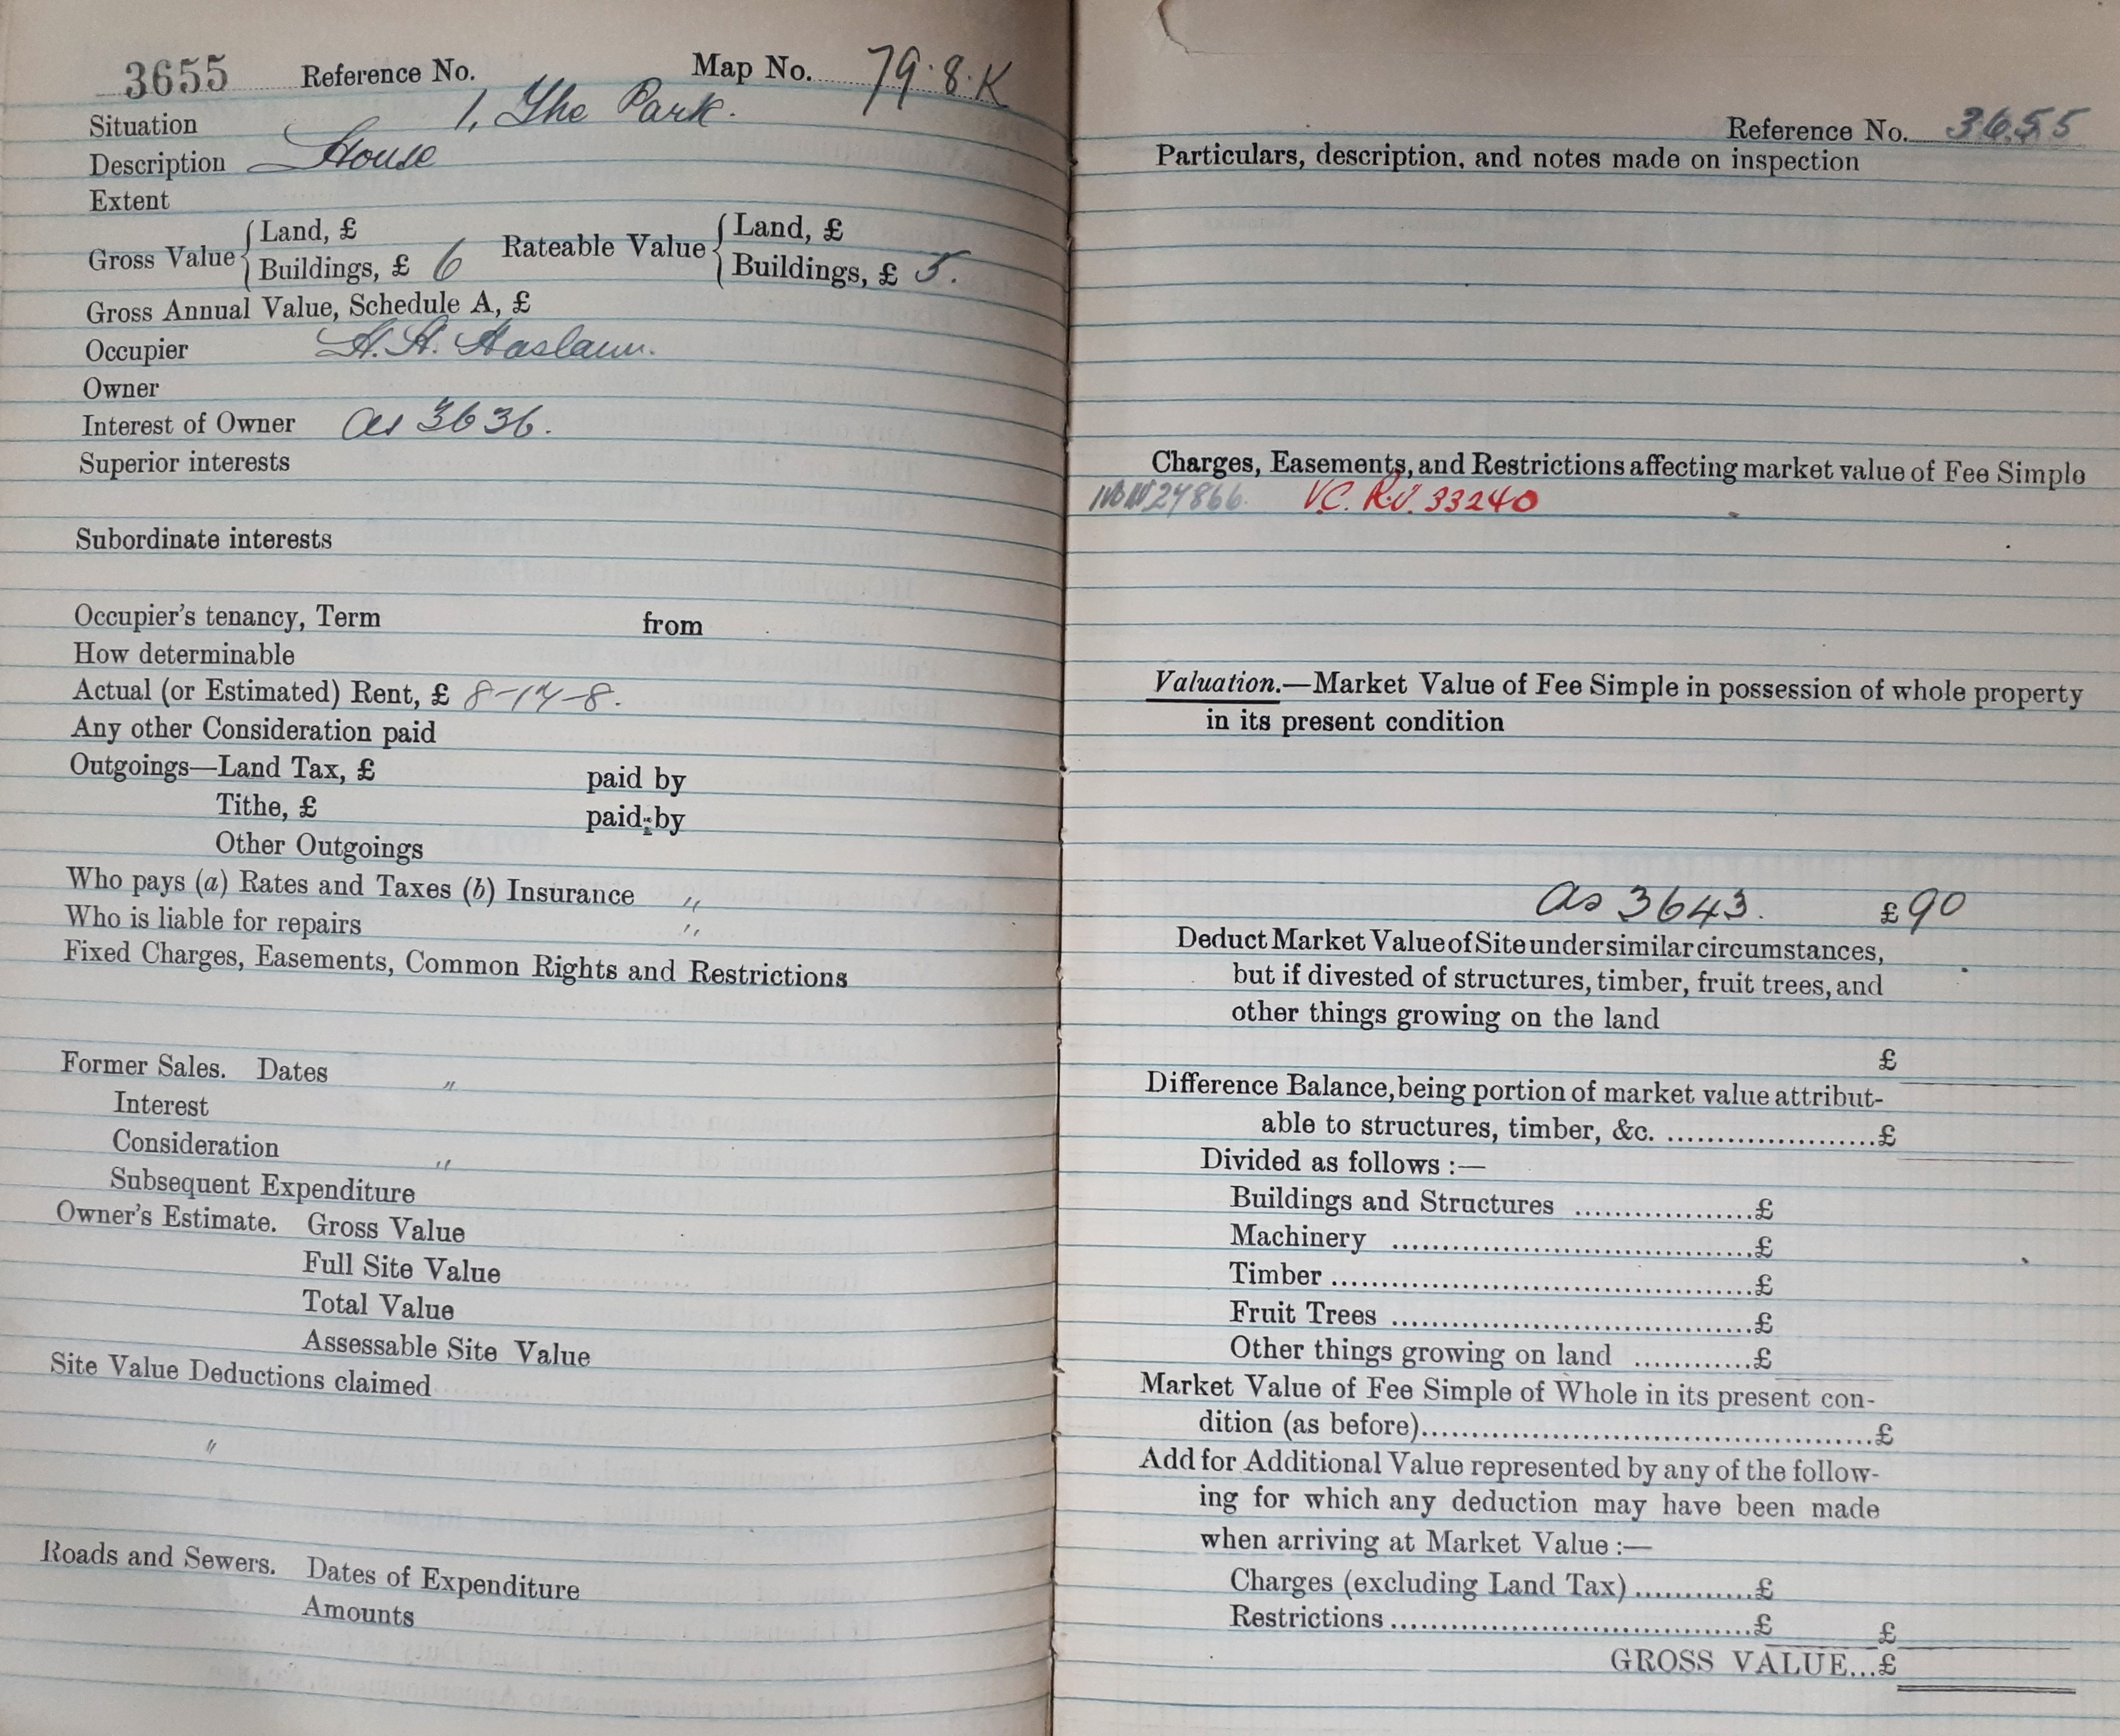 3655 Reference No. Map No. 79.8.K
Situation 1, The Park.
Description House
Extent
Gross Value { Land, £ Rateable Value { Land, £
Buildings, £ 6 Buildings, £ 5.
Gross Annual Value, Schedule A, £
Occupier H. Haslam.
Owner
Interest of Owner as 3636.
Superior interests
Subordinate interests
Occupier's tenancy, Term from
How determinable
Actual (or Estimated) Rent, £ 8-14-8.
Any other Consideration paid
Outgoings—Land Tax, £ paid by
Tithe, £ paid by
Other Outgoings
Who pays (a) Rates and Taxes (b) Insurance "
Who is liable for repairs "
Fixed Charges, Easements, Common Rights and Restrictions
Former Sales. Dates "
Interest
Consideration "
Subsequent Expenditure
Owner's Estimate. Gross Value
Full Site Value
Total Value
Assessable Site Value
Site Value Deductions claimed
"
Roads and Sewers. Dates of Expenditure
Amounts
Reference No. 3655
Particulars, description, and notes made on inspection
Charges, Easements, and Restrictions affecting market value of Fee Simple
27866. V.C. R.V. 33240
Valuation.—Market Value of Fee Simple in possession of whole property
in its present condition
as 3643. £90
Deduct Market Value of Site under similar circumstances,
but if divested of structures, timber, fruit trees, and
other things growing on the land
£
Difference Balance, being portion of market value attribut-
able to structures, timber, &c. .....................£
Divided as follows :—
Buildings and Structures ..................£
Machinery ....................................£
Timber ..........................................£
Fruit Trees ....................................£
Other things growing on land ............£
Market Value of Fee Simple of Whole in its present con-
dition (as before)..............................................£
Add for Additional Value represented by any of the follow-
ing for which any deduction may have been made
when arriving at Market Value :—
Charges (excluding Land Tax) ............£
Restrictions ....................................£ £
GROSS VALUE...£